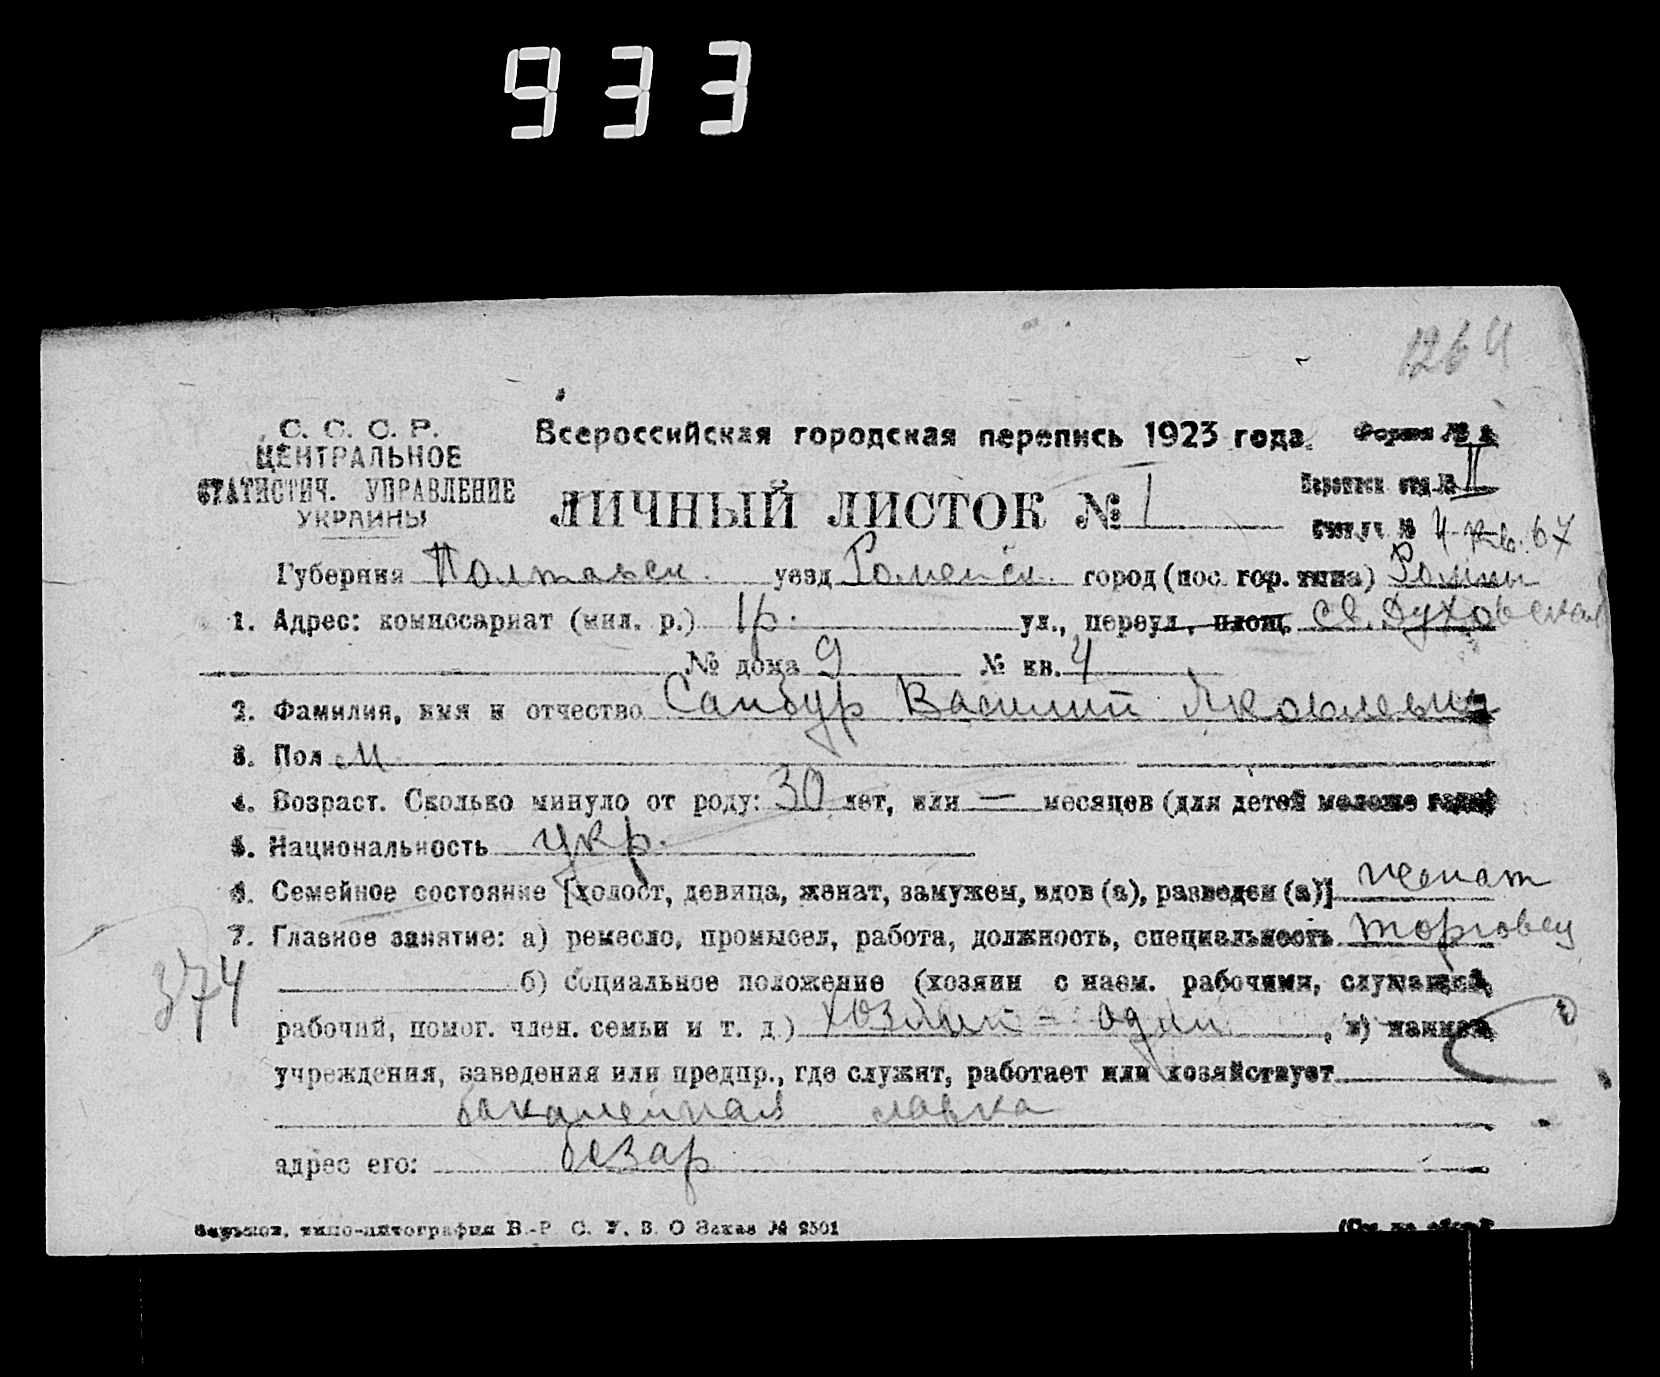 933
1264
С. С. С. Р.
ЦЕНТРАЛЬНОЕ
СТАТИСТИЧ. УПРАВЛЕНИЕ
УКРАИНЫ
Всероссийская городская перепись 1923 года.
Форма №
ЛИЧНЫЙ ЛИСТОК № 1
отд. № II
№ 4 кв. 67
Губерния Полтавск. уезд Роменск. город (пос. гор. типа) Ромны
1. Адрес: комиссариат (мил. р.) 1 р. ул., переул., площ. Св. Духовская
№ дома 9 № кв. 4
2. Фамилия, имя и отчество Самбур Василий Яковлевич
3. Пол М
4. Возраст. Сколько минуло от роду: 30 лет, или — месяцев (для детей моложе года)
5. Национальность укр.
6. Семейное состояние [холост, девица, женат, замужем, вдов (а), разведен (а)] женат
7. Главное занятие: а) ремесло, промысел, работа, должность, специальность торговец
374
б) социальное положение (хозяин с наем. рабочими, служащий,
рабочий, помог. член. семьи и т. д.) хозяин - один, в)
учреждения, заведения или предпр., где служит, работает или хозяйствует
бакалейная лавка
адрес его: базар
типо-литография В.-Р. С. У. В. О Заказ № 2501
(См. на обор.